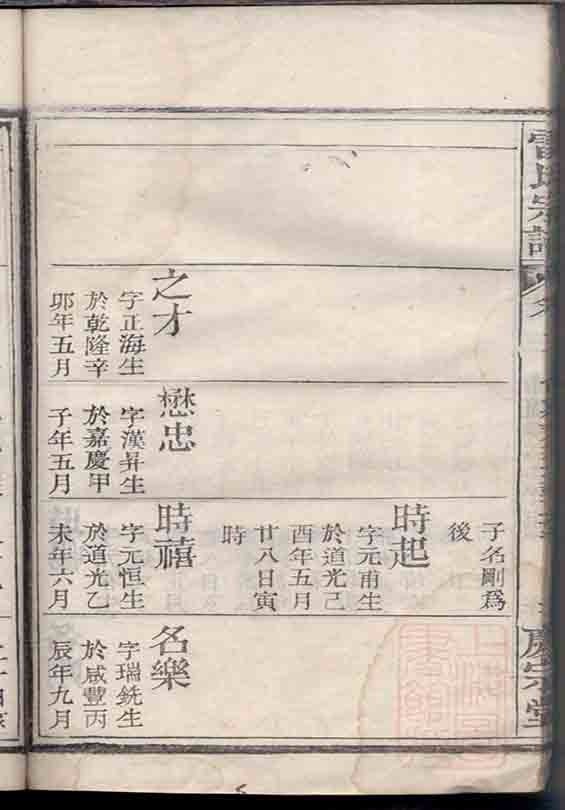 宗譜
慶宗堂
之才
字正海生
於乾隆辛
卯年五月
懋忠
字漢昇生
於嘉慶甲
子年五月
子名剛為
後
時起
字元甫生
於道光己
酉年五月
廿八日寅
時
時禧
字元恒生
於道光乙
未年六月
名樂
字瑞銑生
於咸豐丙
辰年九月